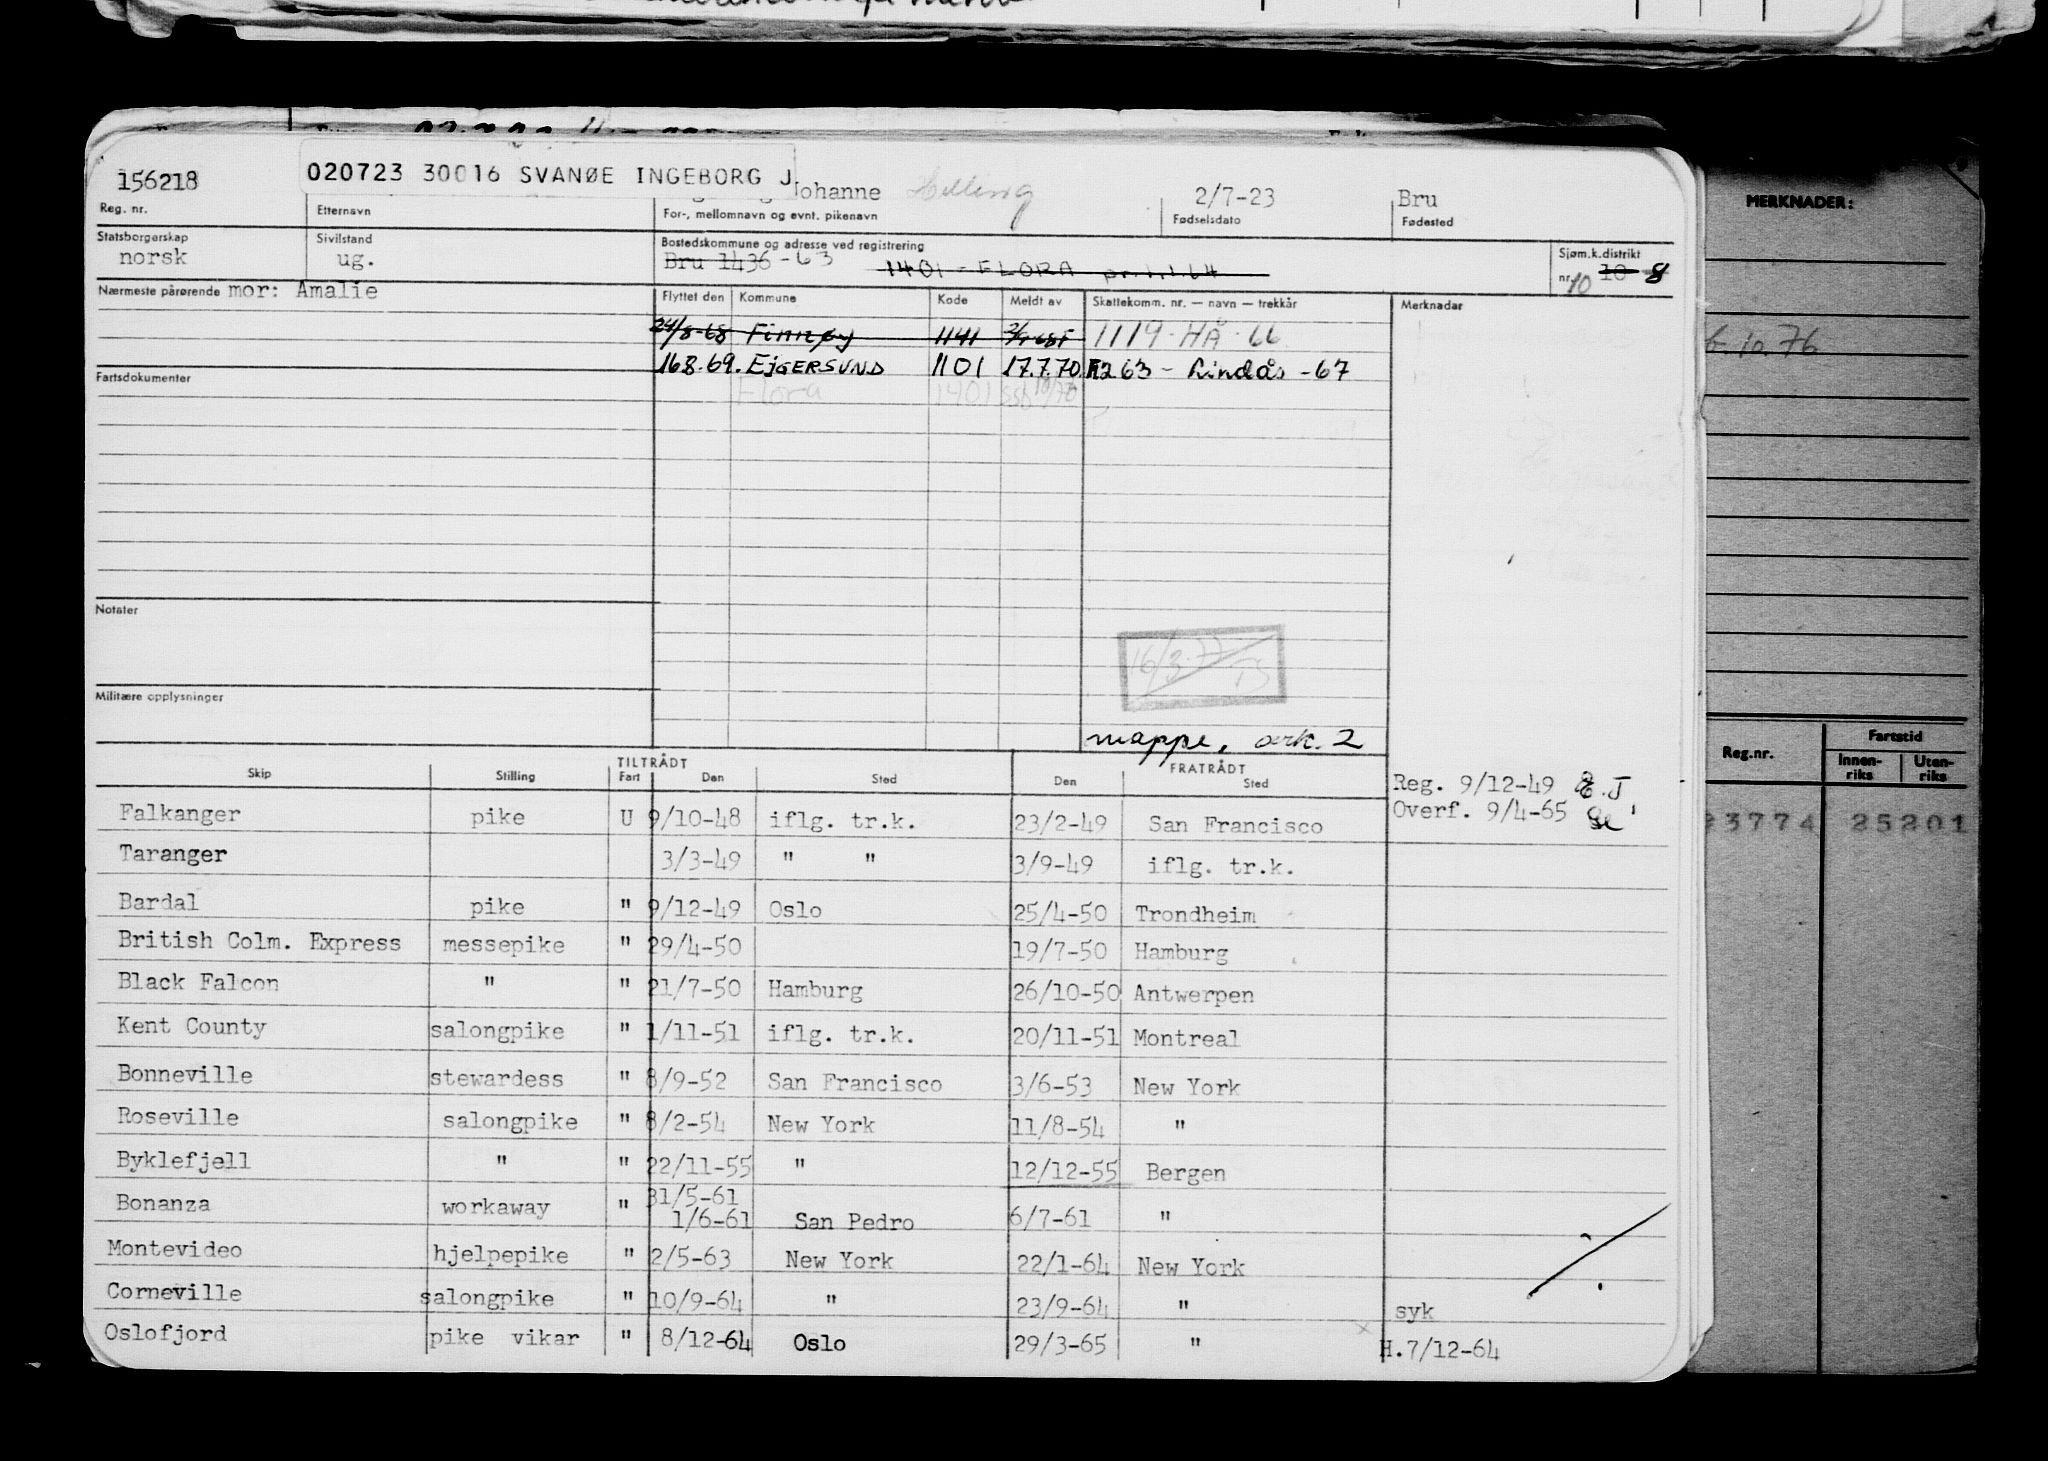 156218 020723 30016 SVANØE INGEBORG J. Johanne Helling 2/7-23 Bru
Reg. nr. Etternavn For-, mellomnavn og evnt. pikenavn Fødselsdato Fødested
Statsborgerskap Sivilstand Bostedskommune og adresse ved registrering Sjøm.k.distrikt
norsk ug. Bru 1436 -63 1401 - FLORA pr. 1.1.64 nr. 10 10 8
Nærmeste pårørende mor: Amalie Flyttet den Kommune Kode Meldt av Skattekomm. nr. — navn — trekkår Merknader
24/8-68 Finnøy 1141 1119 - HÅ - 66
16.8.69. EJGERSUND 1101 17.7.70. 1263 - Lindås - 67
Fartsdokumenter
Flora 1401 SSD 10/70
Notater
16/3.77 TS
Militære opplysninger
mappe, ark. 2
Skip Stilling TILTRÅDT Fart Den Sted FRATRÅDT Den Sted
Reg. 9/12-49 E.J
Overf. 9/4-65
Falkanger pike U 9/10-48 iflg. tr.k. 23/2-49 San Francisco
Taranger 3/3-49 " " 3/9-49 iflg. tr.k.
Bardal pike " 9/12-49 Oslo 25/4-50 Trondheim
British Colm. Express messepike " 29/4-50 19/7-50 Hamburg
Black Falcon " " 21/7-50 Hamburg 26/10-50 Antwerpen
Kent County salongpike " 1/11-51 iflg. tr.k. 20/11-51 Montreal
Bonneville stewardess " 8/9-52 San Francisco 3/6-53 New York
Roseville salongpike " 8/2-54 New York 11/8-54 "
Byklefjell " " 22/11-55 " 12/12-55 Bergen
Bonanza workaway " 31/5-61
1/6-61 San Pedro 6/7-61 "
Montevideo hjelpepike " 2/5-63 New York 22/1-64 New York
Corneville salongpike " 10/9-64 " 23/9-64 " syk
Oslofjord pike vikar " 8/12-64 Oslo 29/3-65 x " H.7/12-64
MERKNADER:
6.10.76
Reg.nr. Fartstid
Innen-riks Uten-riks
23774 25201